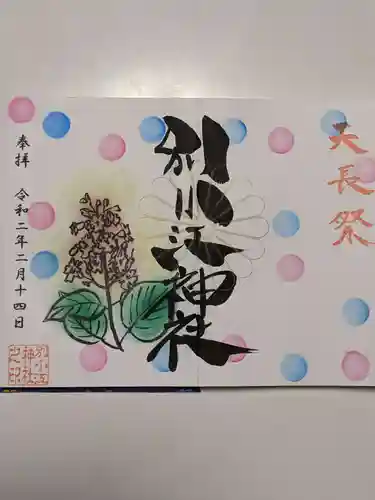 大長祭
別小江神社
奉拝 令和二年二月十四日
別小江
神社
之印